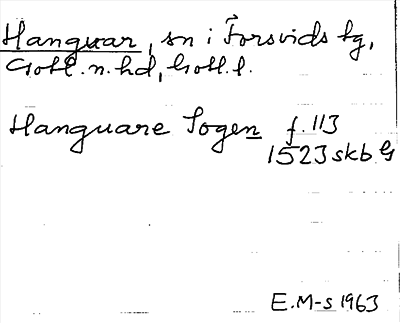 Hanguar, sn i Forsvids tg,
Gotl. n. hd, Gotl. l.
Hanguare Sogen f. 113
1523 skb G
E.M-s 1963